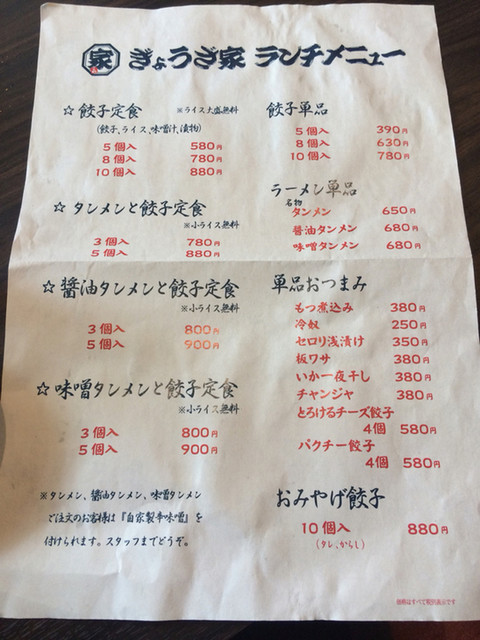 家 ぎょうざ家 ランチメニュー
☆ 餃子定食 ※ライス大盛無料
(餃子、ライス、味噌汁、漬物)
5個入 580円
8個入 780円
10個入 880円
☆ タンメンと餃子定食
※小ライス無料
3個入 780円
5個入 880円
☆ 醤油タンメンと餃子定食
※小ライス無料
3個入 800円
5個入 900円
☆ 味噌タンメンと餃子定食
※小ライス無料
3個入 800円
5個入 900円
※タンメン、醤油タンメン、味噌タンメン
ご注文のお客様は『自家製辛味噌』を
付けられます。スタッフまでどうぞ。
餃子単品
5個入 390円
8個入 630円
10個入 780円
ラーメン単品
名物
タンメン 650円
醤油タンメン 680円
味噌タンメン 680円
単品おつまみ
もつ煮込み 380円
冷奴 250円
セロリ浅漬け 350円
板ワサ 380円
いか一夜干し 380円
チャンジャ 380円
とろけるチーズ餃子
4個 580円
パクチー餃子
4個 580円
おみやげ餃子
10個入 880円
(タレ、からし)
価格はすべて税別表示です